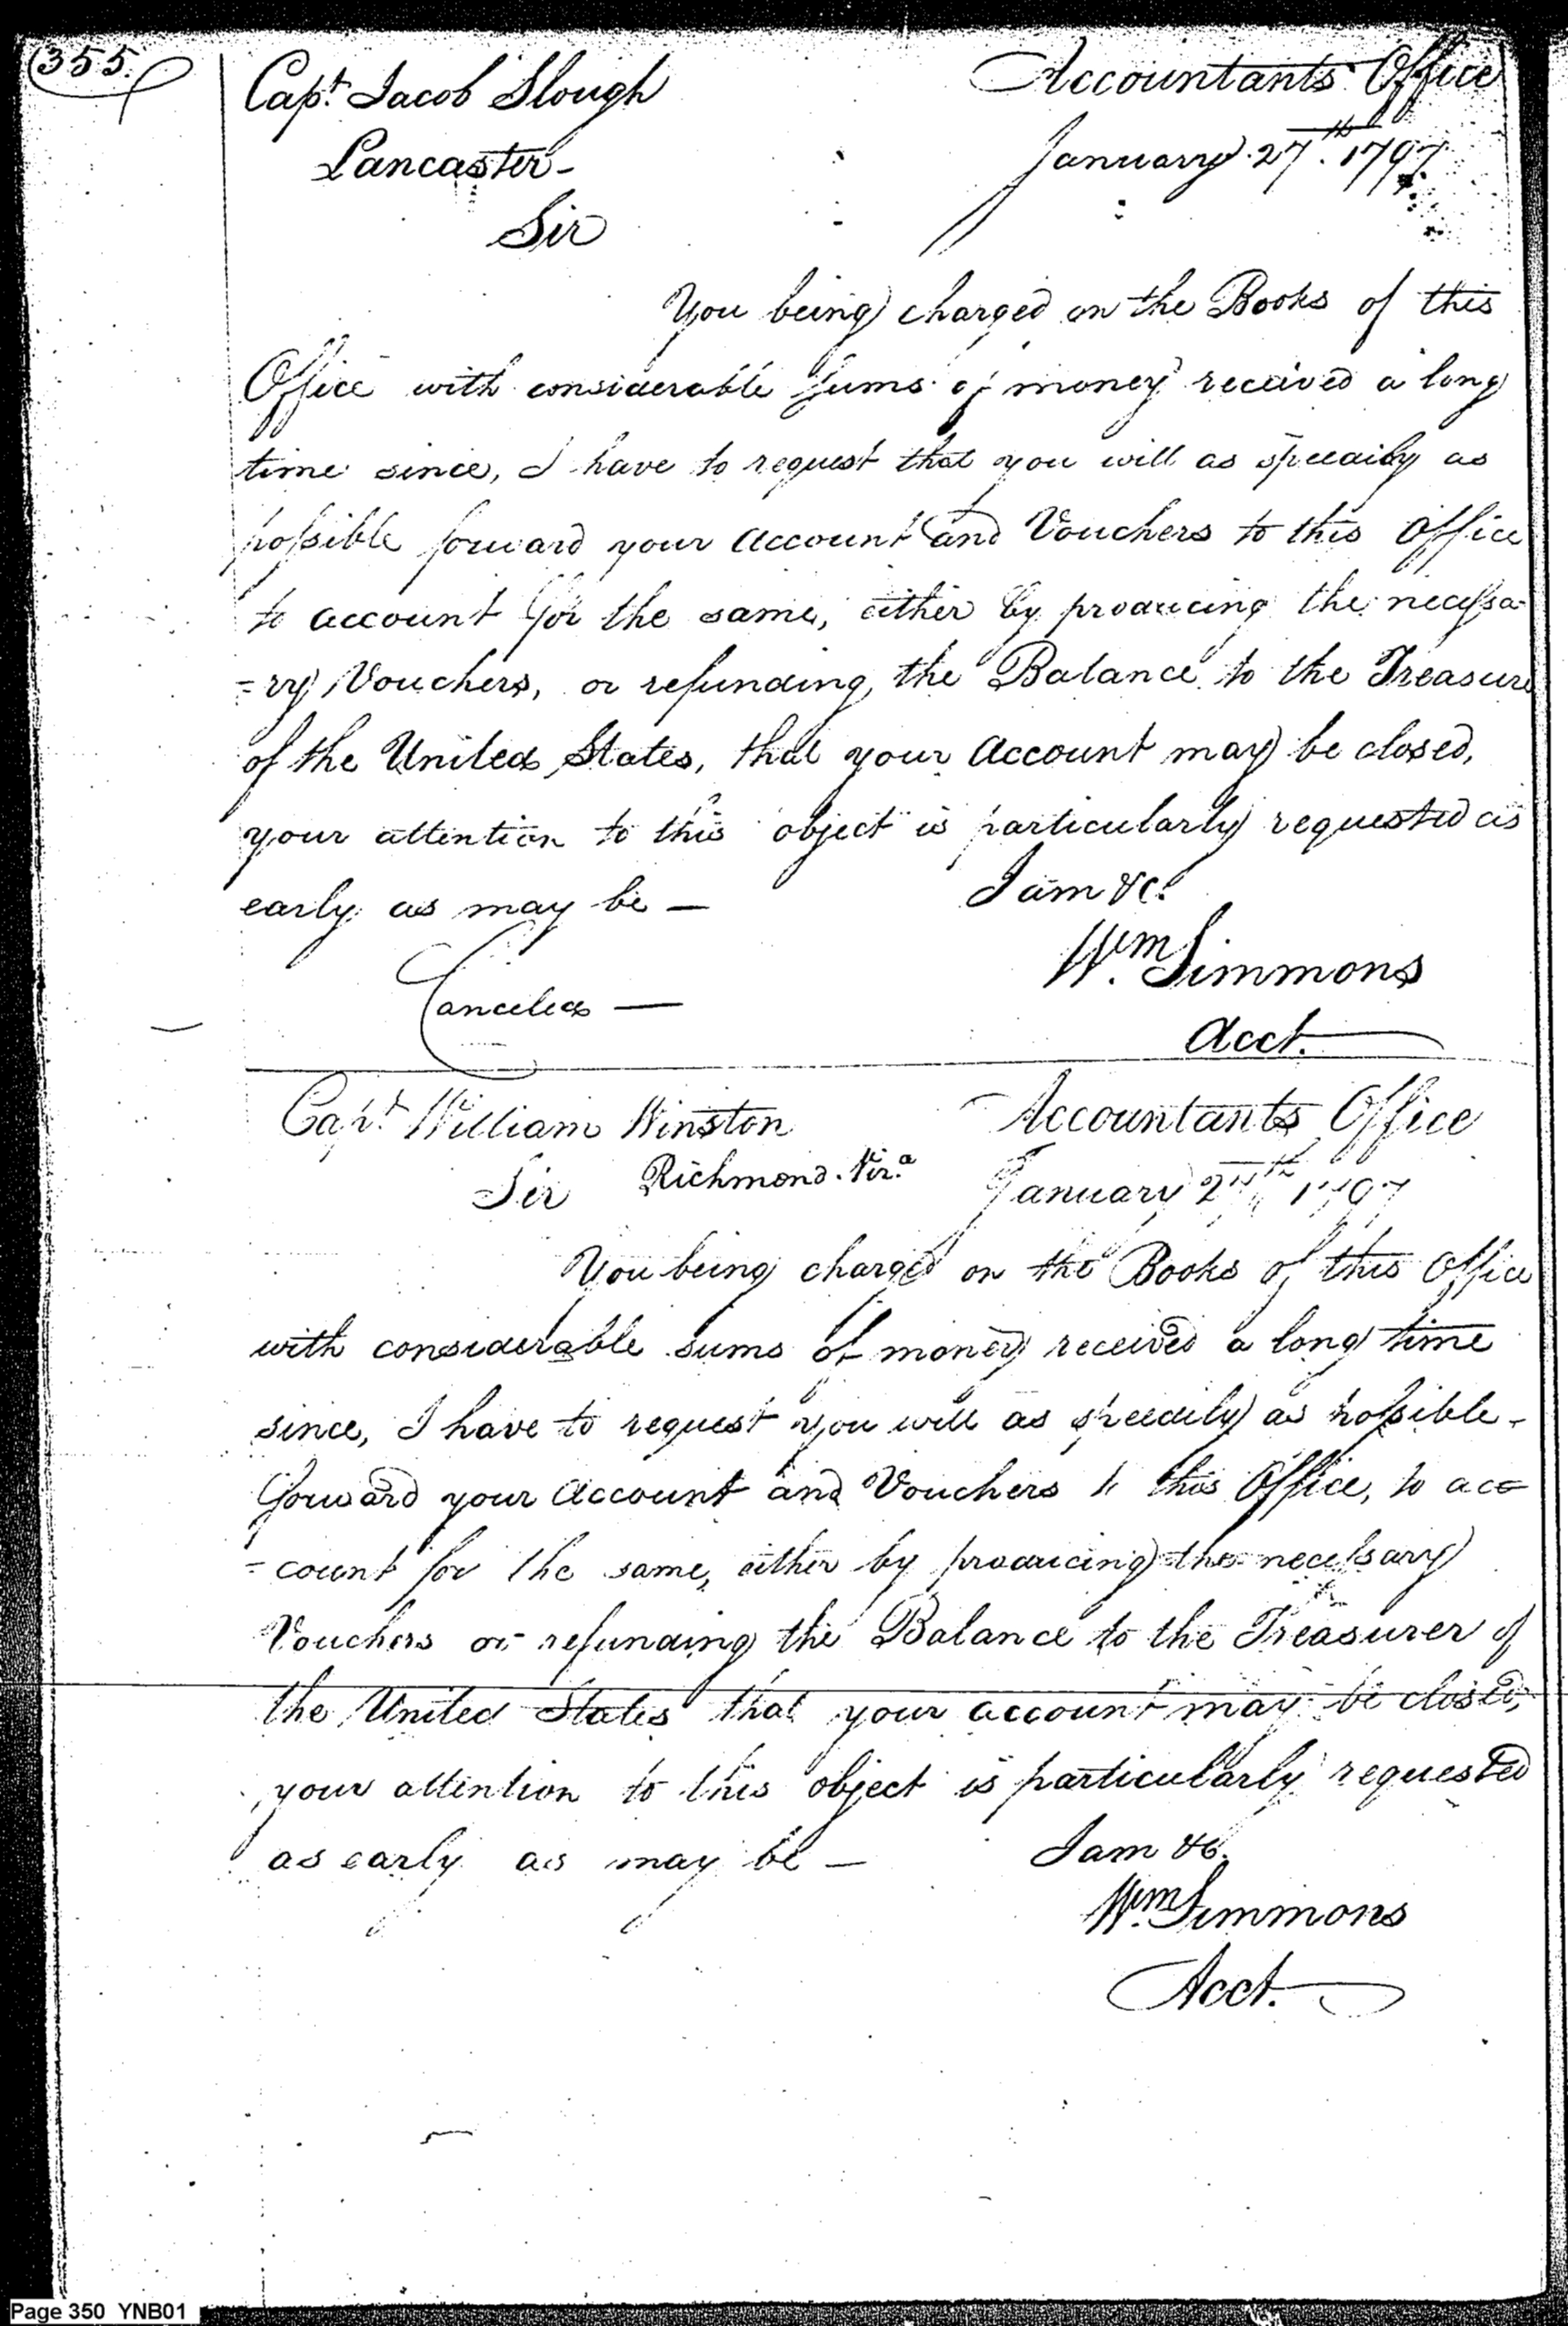 355.
Capt. Jacob Slough
Accountants Office
Lancaster -
January 27th. 1797
Sir
You being charged on the Books of this
Office with considerable sums of money received a long
time since, I have to request that you will as speedily as
possible forward your account and Vouchers to this Office
to account for the same, either by producing the necessa-
=ry Vouchers, or refunding the Balance to the Treasure
of the United States, that your account may be closed,
your attention to this object is particularly requested as
early as may be —
I am &c.
Wm. Simmons
Acct.
Canceled —
Capt. William Winston
Accountants Office
Richmond. Vira.
January 27th 1797
Sir
You being charged on the Books of this Office
with considerable sums of money received a long time
since, I have to request you will as speedily as possible -
forward your account and Vouchers to this Office, to ac=
=count for the same, either by producing the necessary
Vouchers or refunding the Balance to the Treasurer of
the United States that your account may be closed,
your attention to this object is particularly requested
as early as may be —
I am &c.
Wm. Simmons
Acct.
Page 350 YNB01